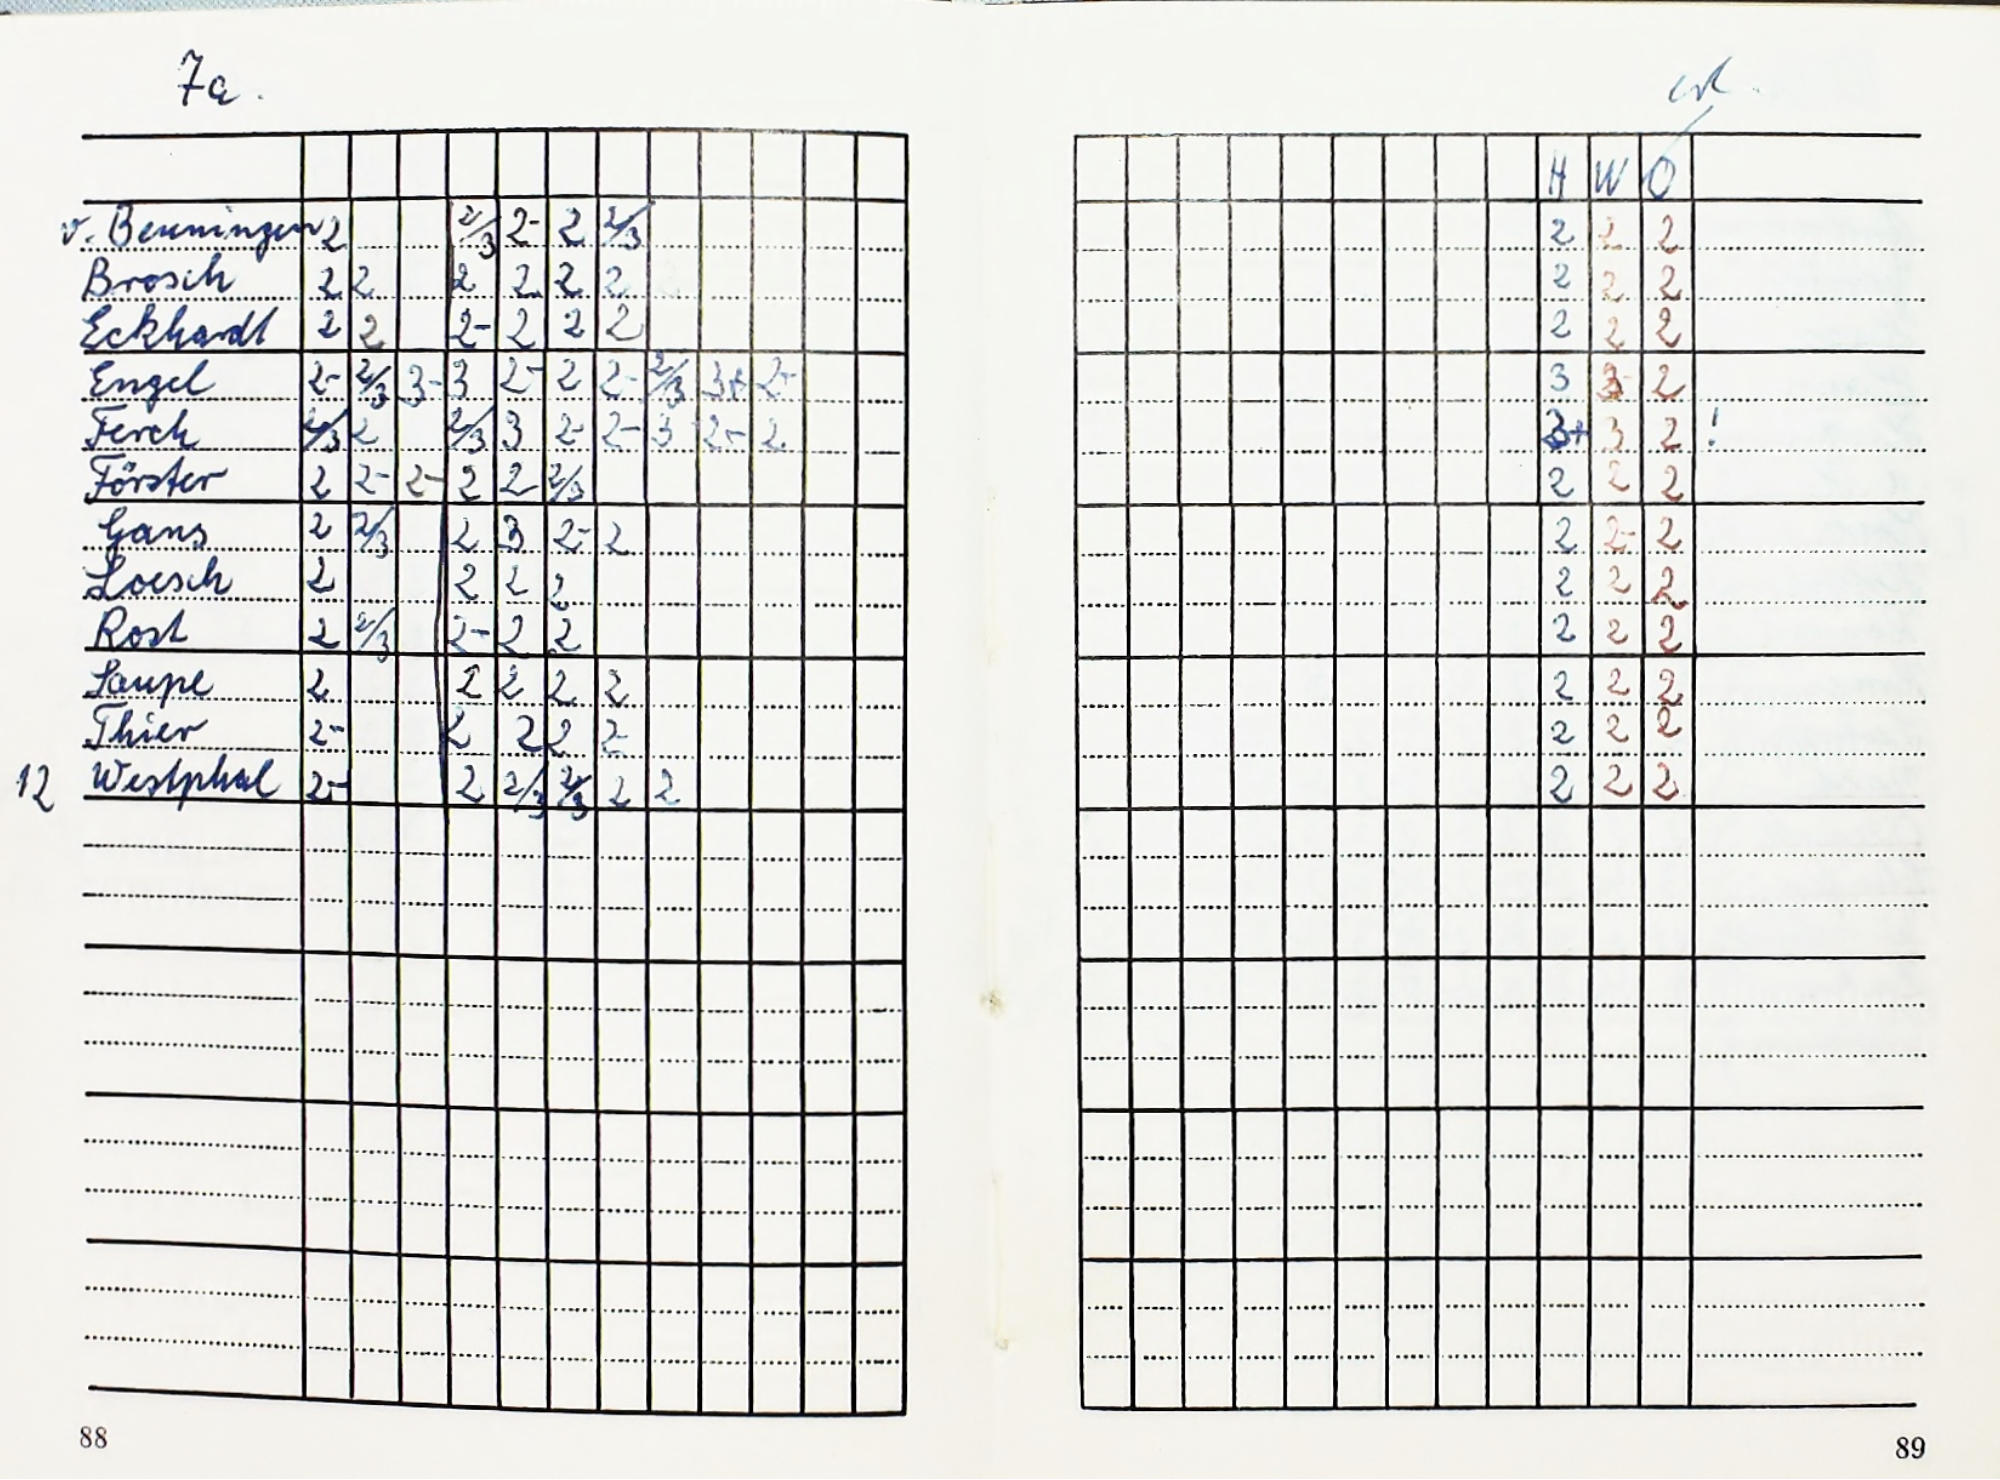 7a.
v. Benningen 2 2/3 2- 2 2/3
Brosch 2 2 2 2 2 2
Eckhardt 2 2 2- 2 2 2
Engel 2- 2/3 3- 3 2- 2 2- 2/3 3+ 2-
Ferch 2/3 2 2/3 3 2- 2- 3 2- 2
Förster 2 2- 2- 2 2 2/3
Gans 2 2/3 2 3 2- 2
Loesch 2 2 2 2
Rost 2 2/3 2- 2 2
Saupe 2 2 2 2 2
Thier 2- 2 2 2 2
12 Westphal 2- 2 2/3 2/3 2 2
88
H W O
2 2 2
2 2 2
2 2 2
3 3- 2
3+ 3 2 !
2 2 2
2 2- 2
2 2 2
2 2 2
2 2 2
2 2 2
2 2 2
89